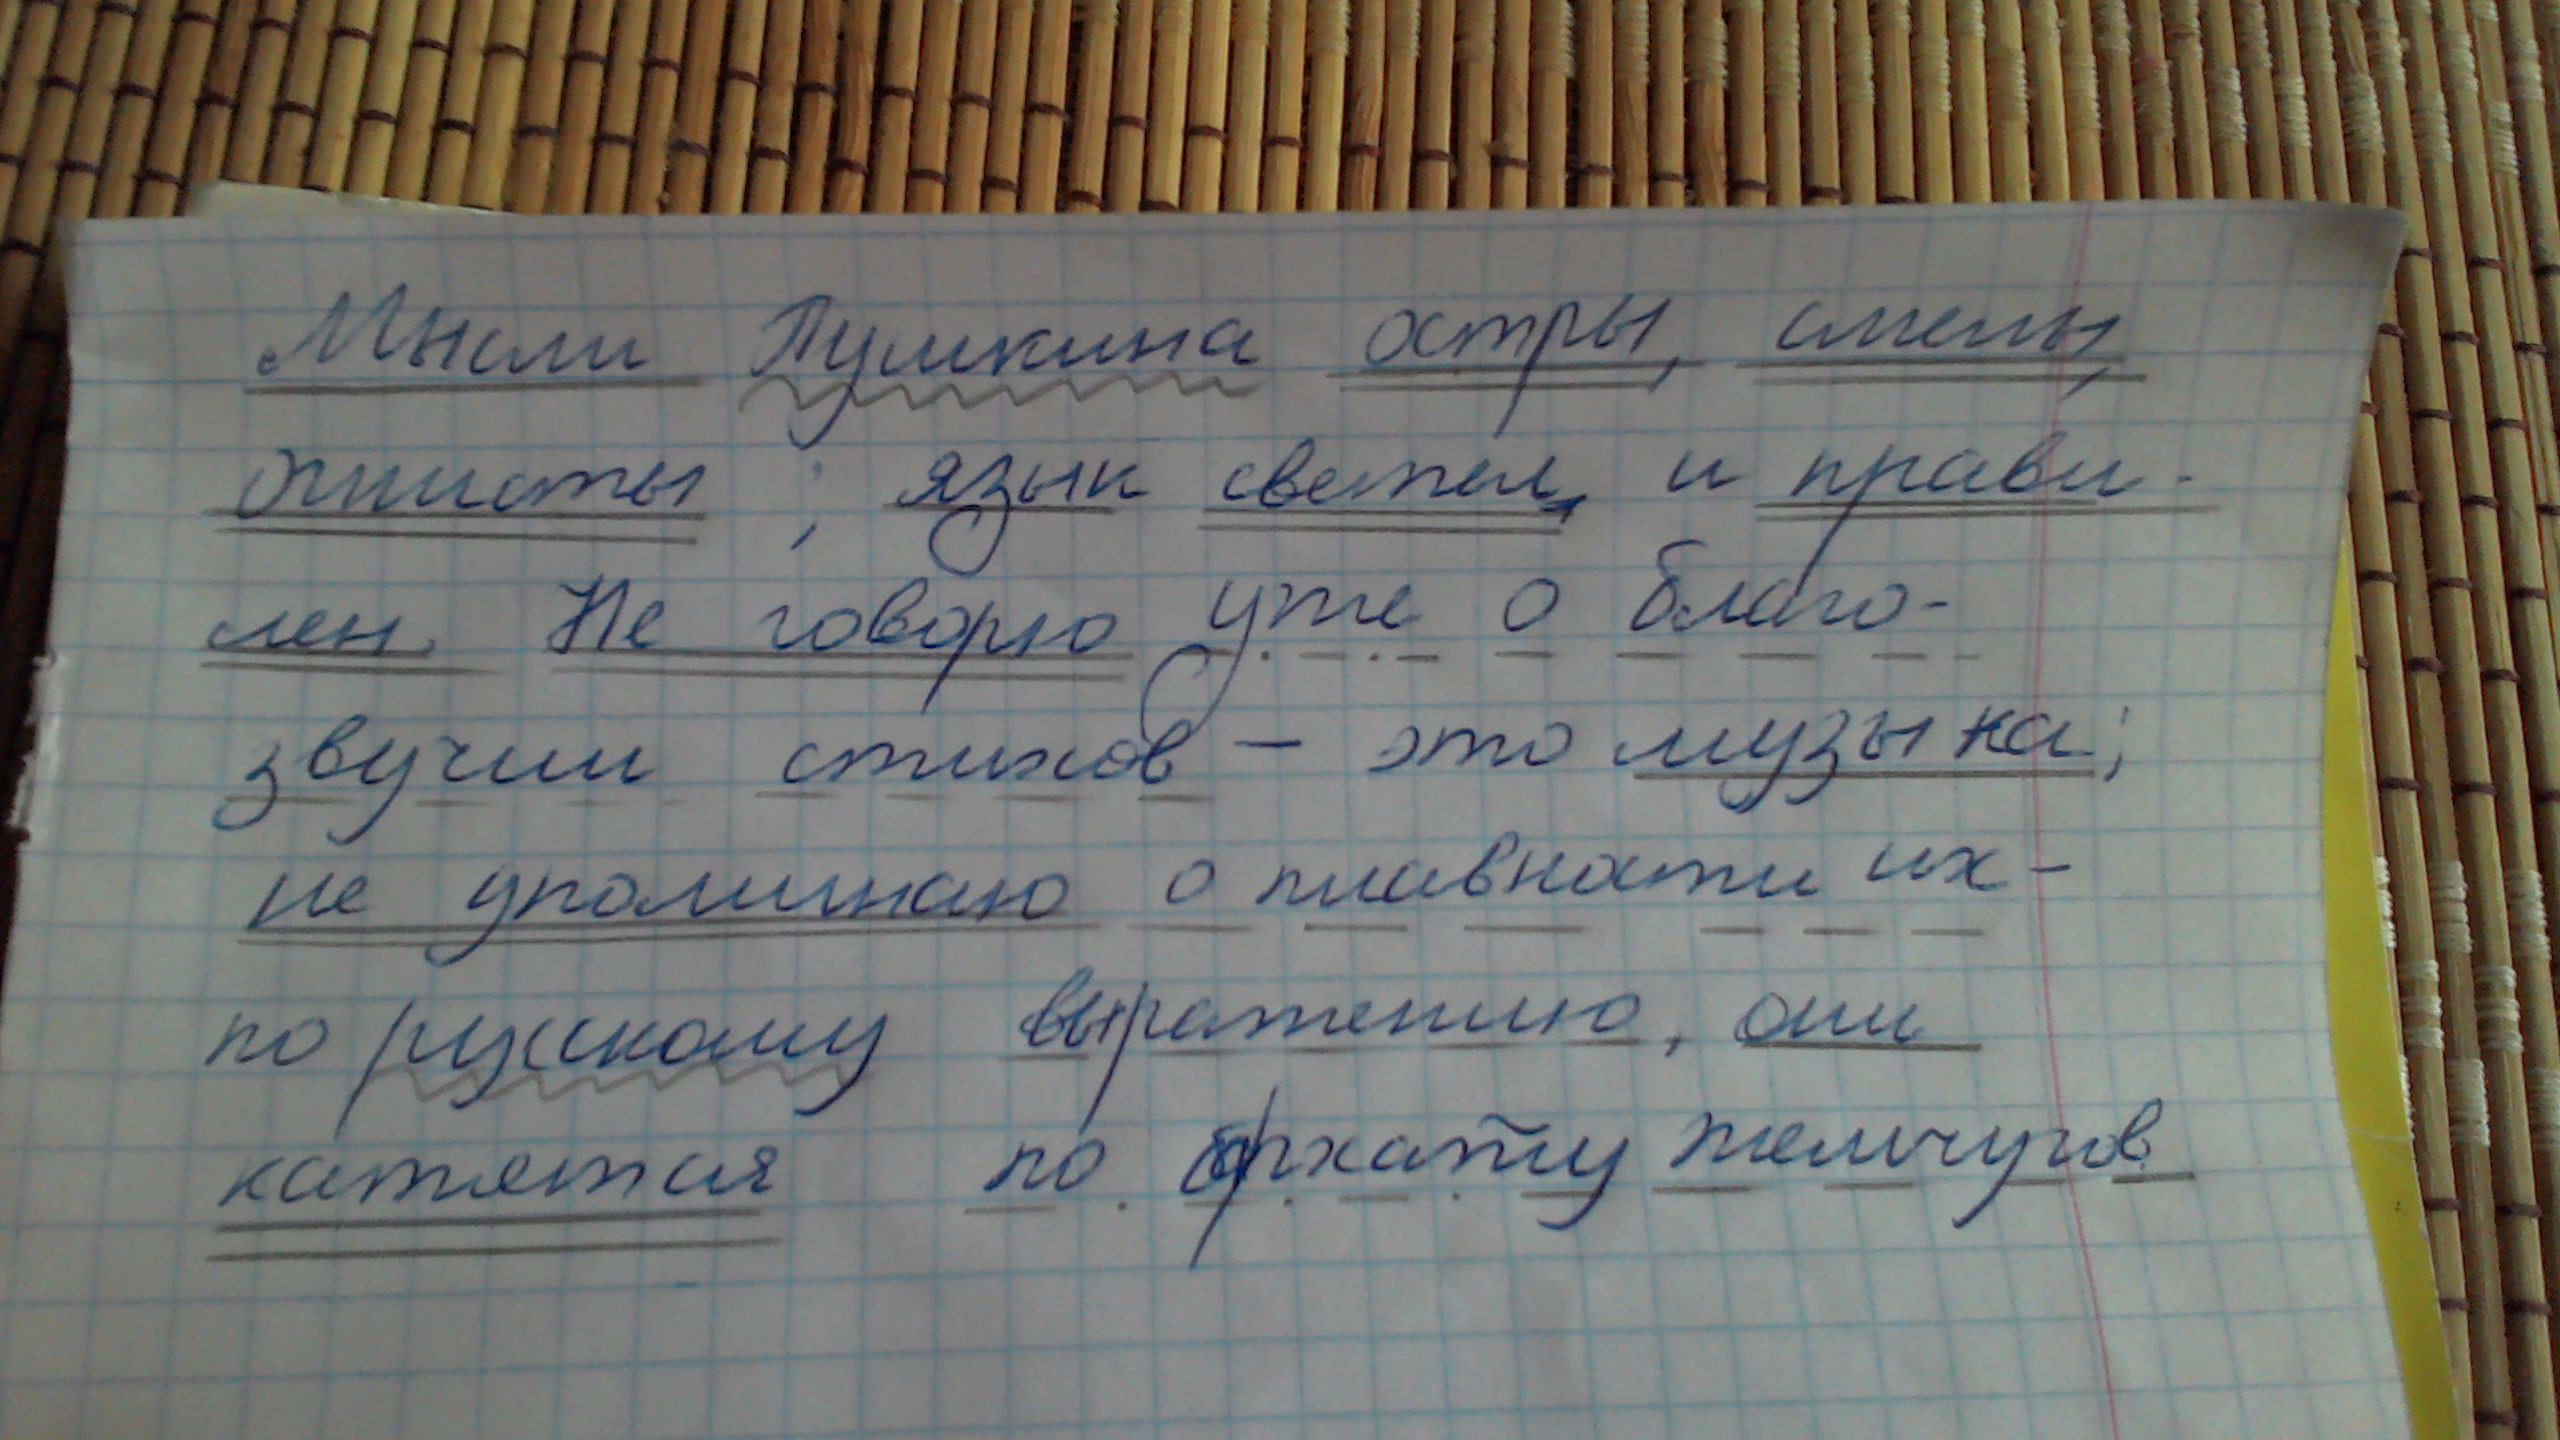 Мысли Пушкина остры, смелы,
огнисты; язык светел и прави-
лен. Не говорю уже о благо-
звучии стихов - это музыка;
не упоминаю о плавности их -
по русскому выражению, они
катятся по бархату жемчугов